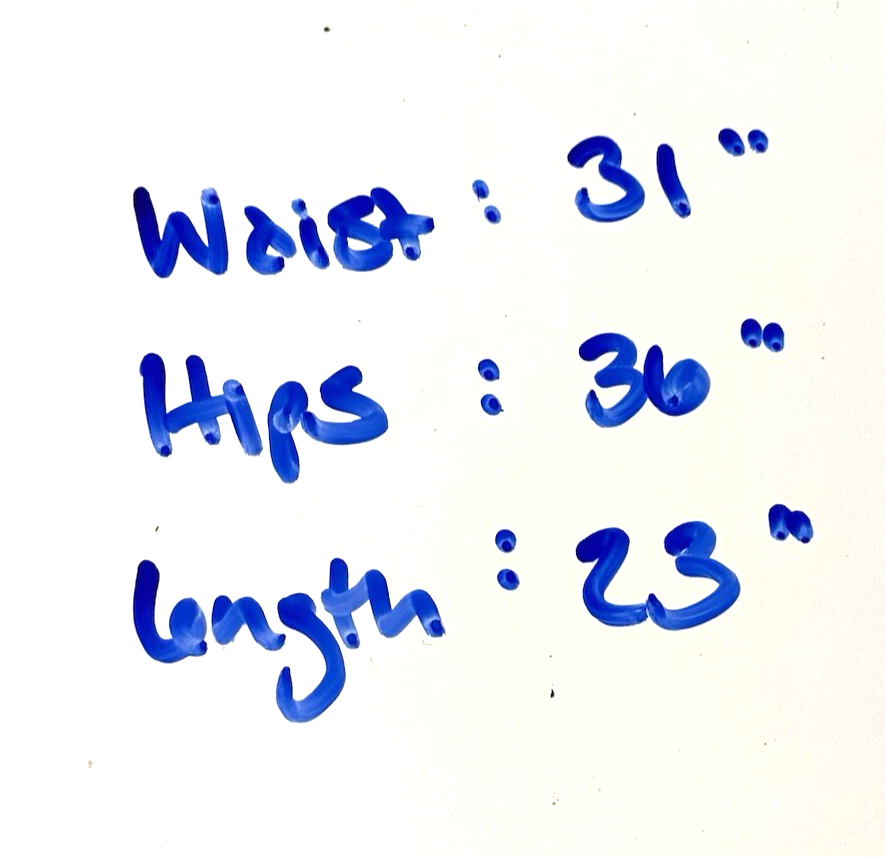 Waist : 31"
Hips : 36"
Length : 23"